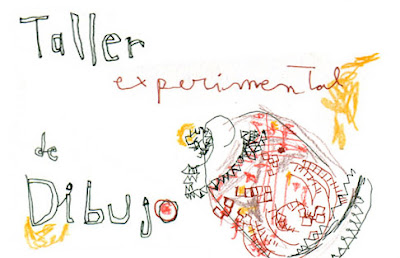 Taller
experimental
de
Dibujo